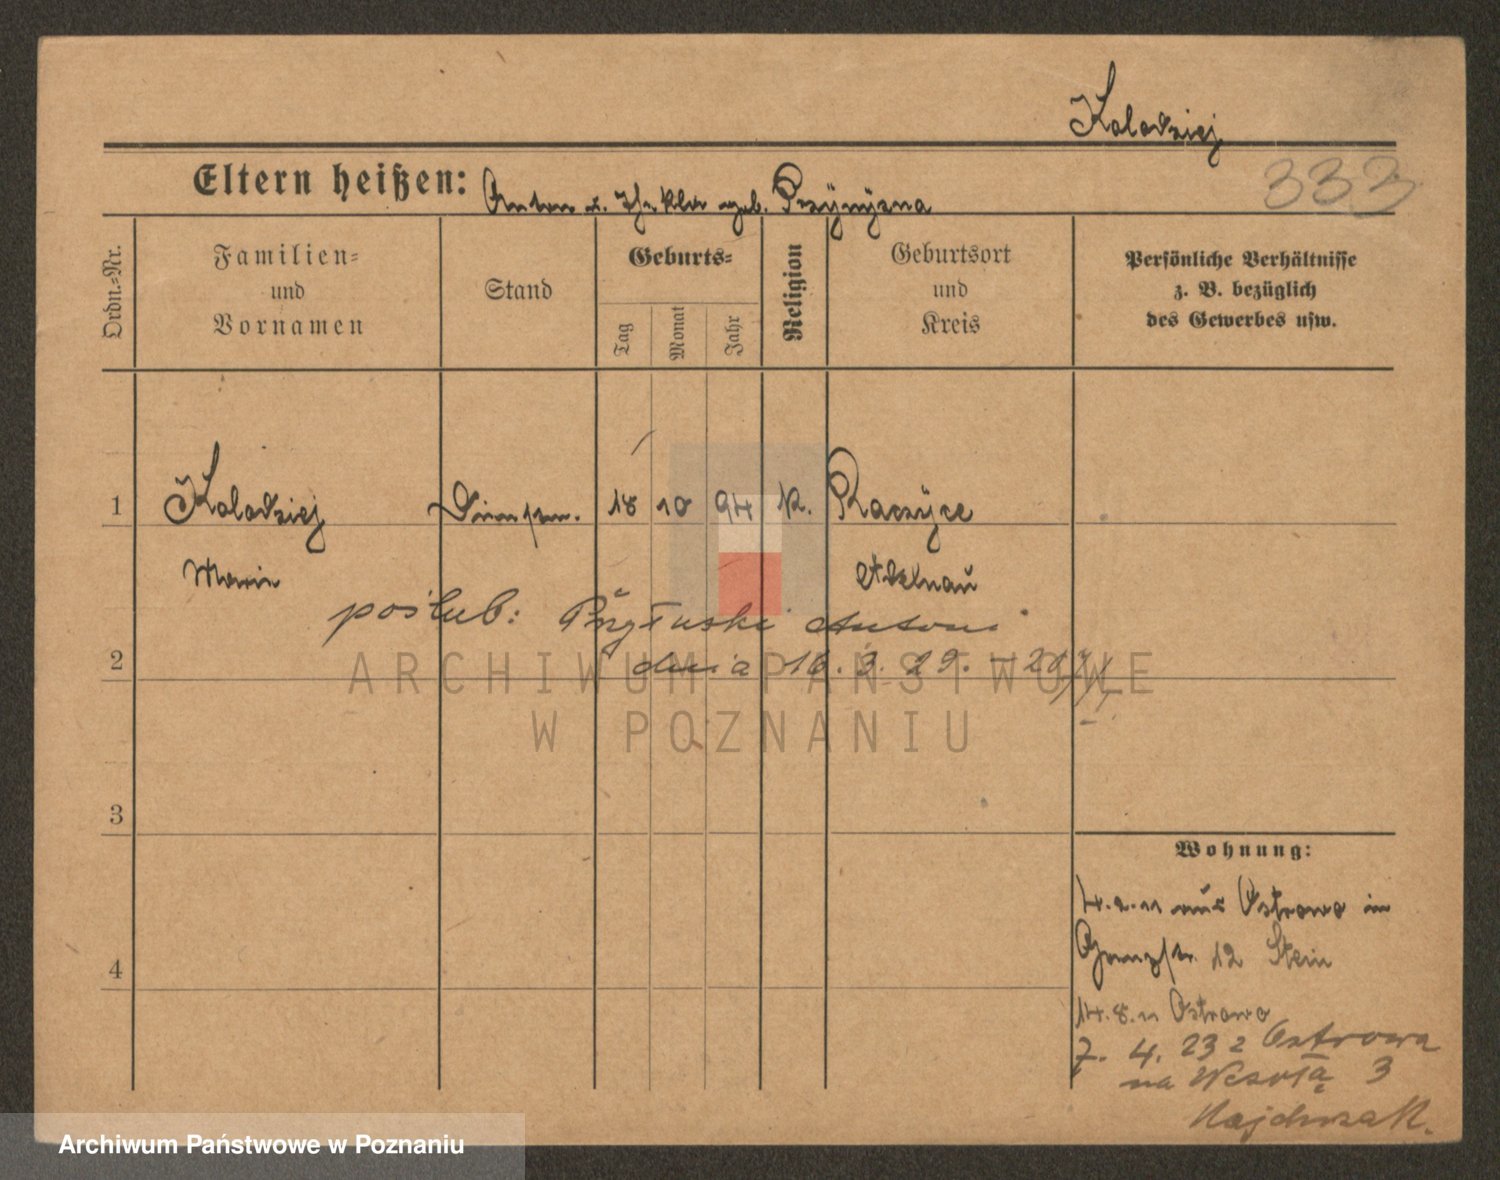 Kolodziej
333
Eltern heißen: Anton u. Thekla geb. Przijnijzna
Ordn.-Nr.
Familien-
und
Vornamen
Stand
Geburts-
Tag
Monat
Jahr
Religion
Geburtsort
und
Kreis
Persönliche Verhältnisse
z. B. bezüglich
des Gewerbes usw.
1 Kolodziej 18 10 94 K. Raczÿce
Marie Adelnau
poślub: Antoni
2 dnia 16. 3. 29.
ARCHIWUM PAŃSTWOWE
W POZNANIU
3
Wohnung:
aus Ostrowo in
12 Stein
4
Ostrowo
7. 4. 23 z Ostrowa
na Wesołą 3
Archiwum Państwowe w Poznaniu